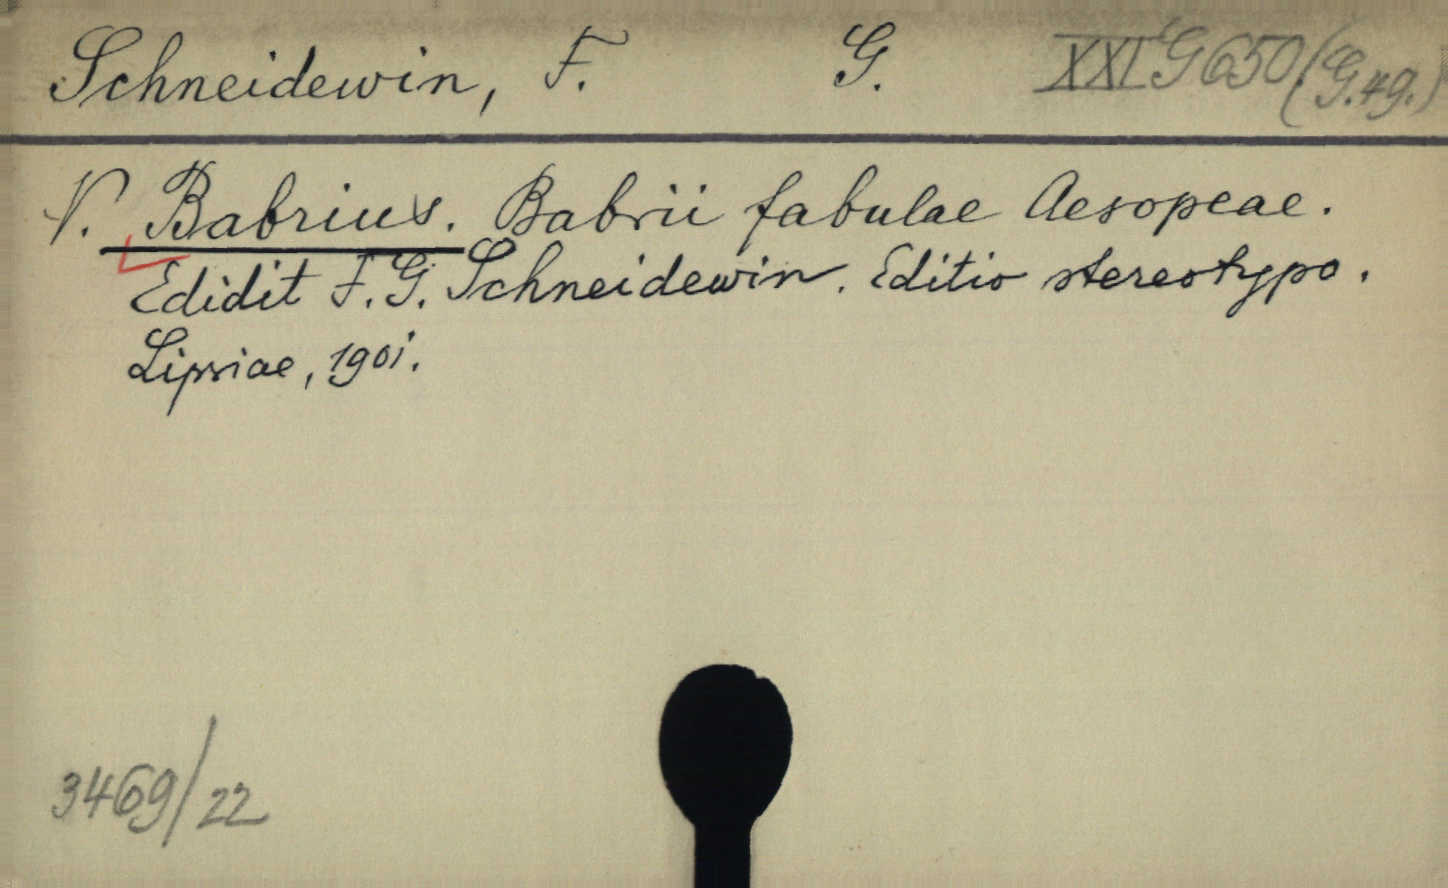 Schneidewin, F. G. XXI G 650 (G.49.)
V. Babrius. Babrii fabulae Aesopeae.
Edidit F.G. Schneidewin. Editio stereotypo.
Lipsiae, 1901.
3469/22